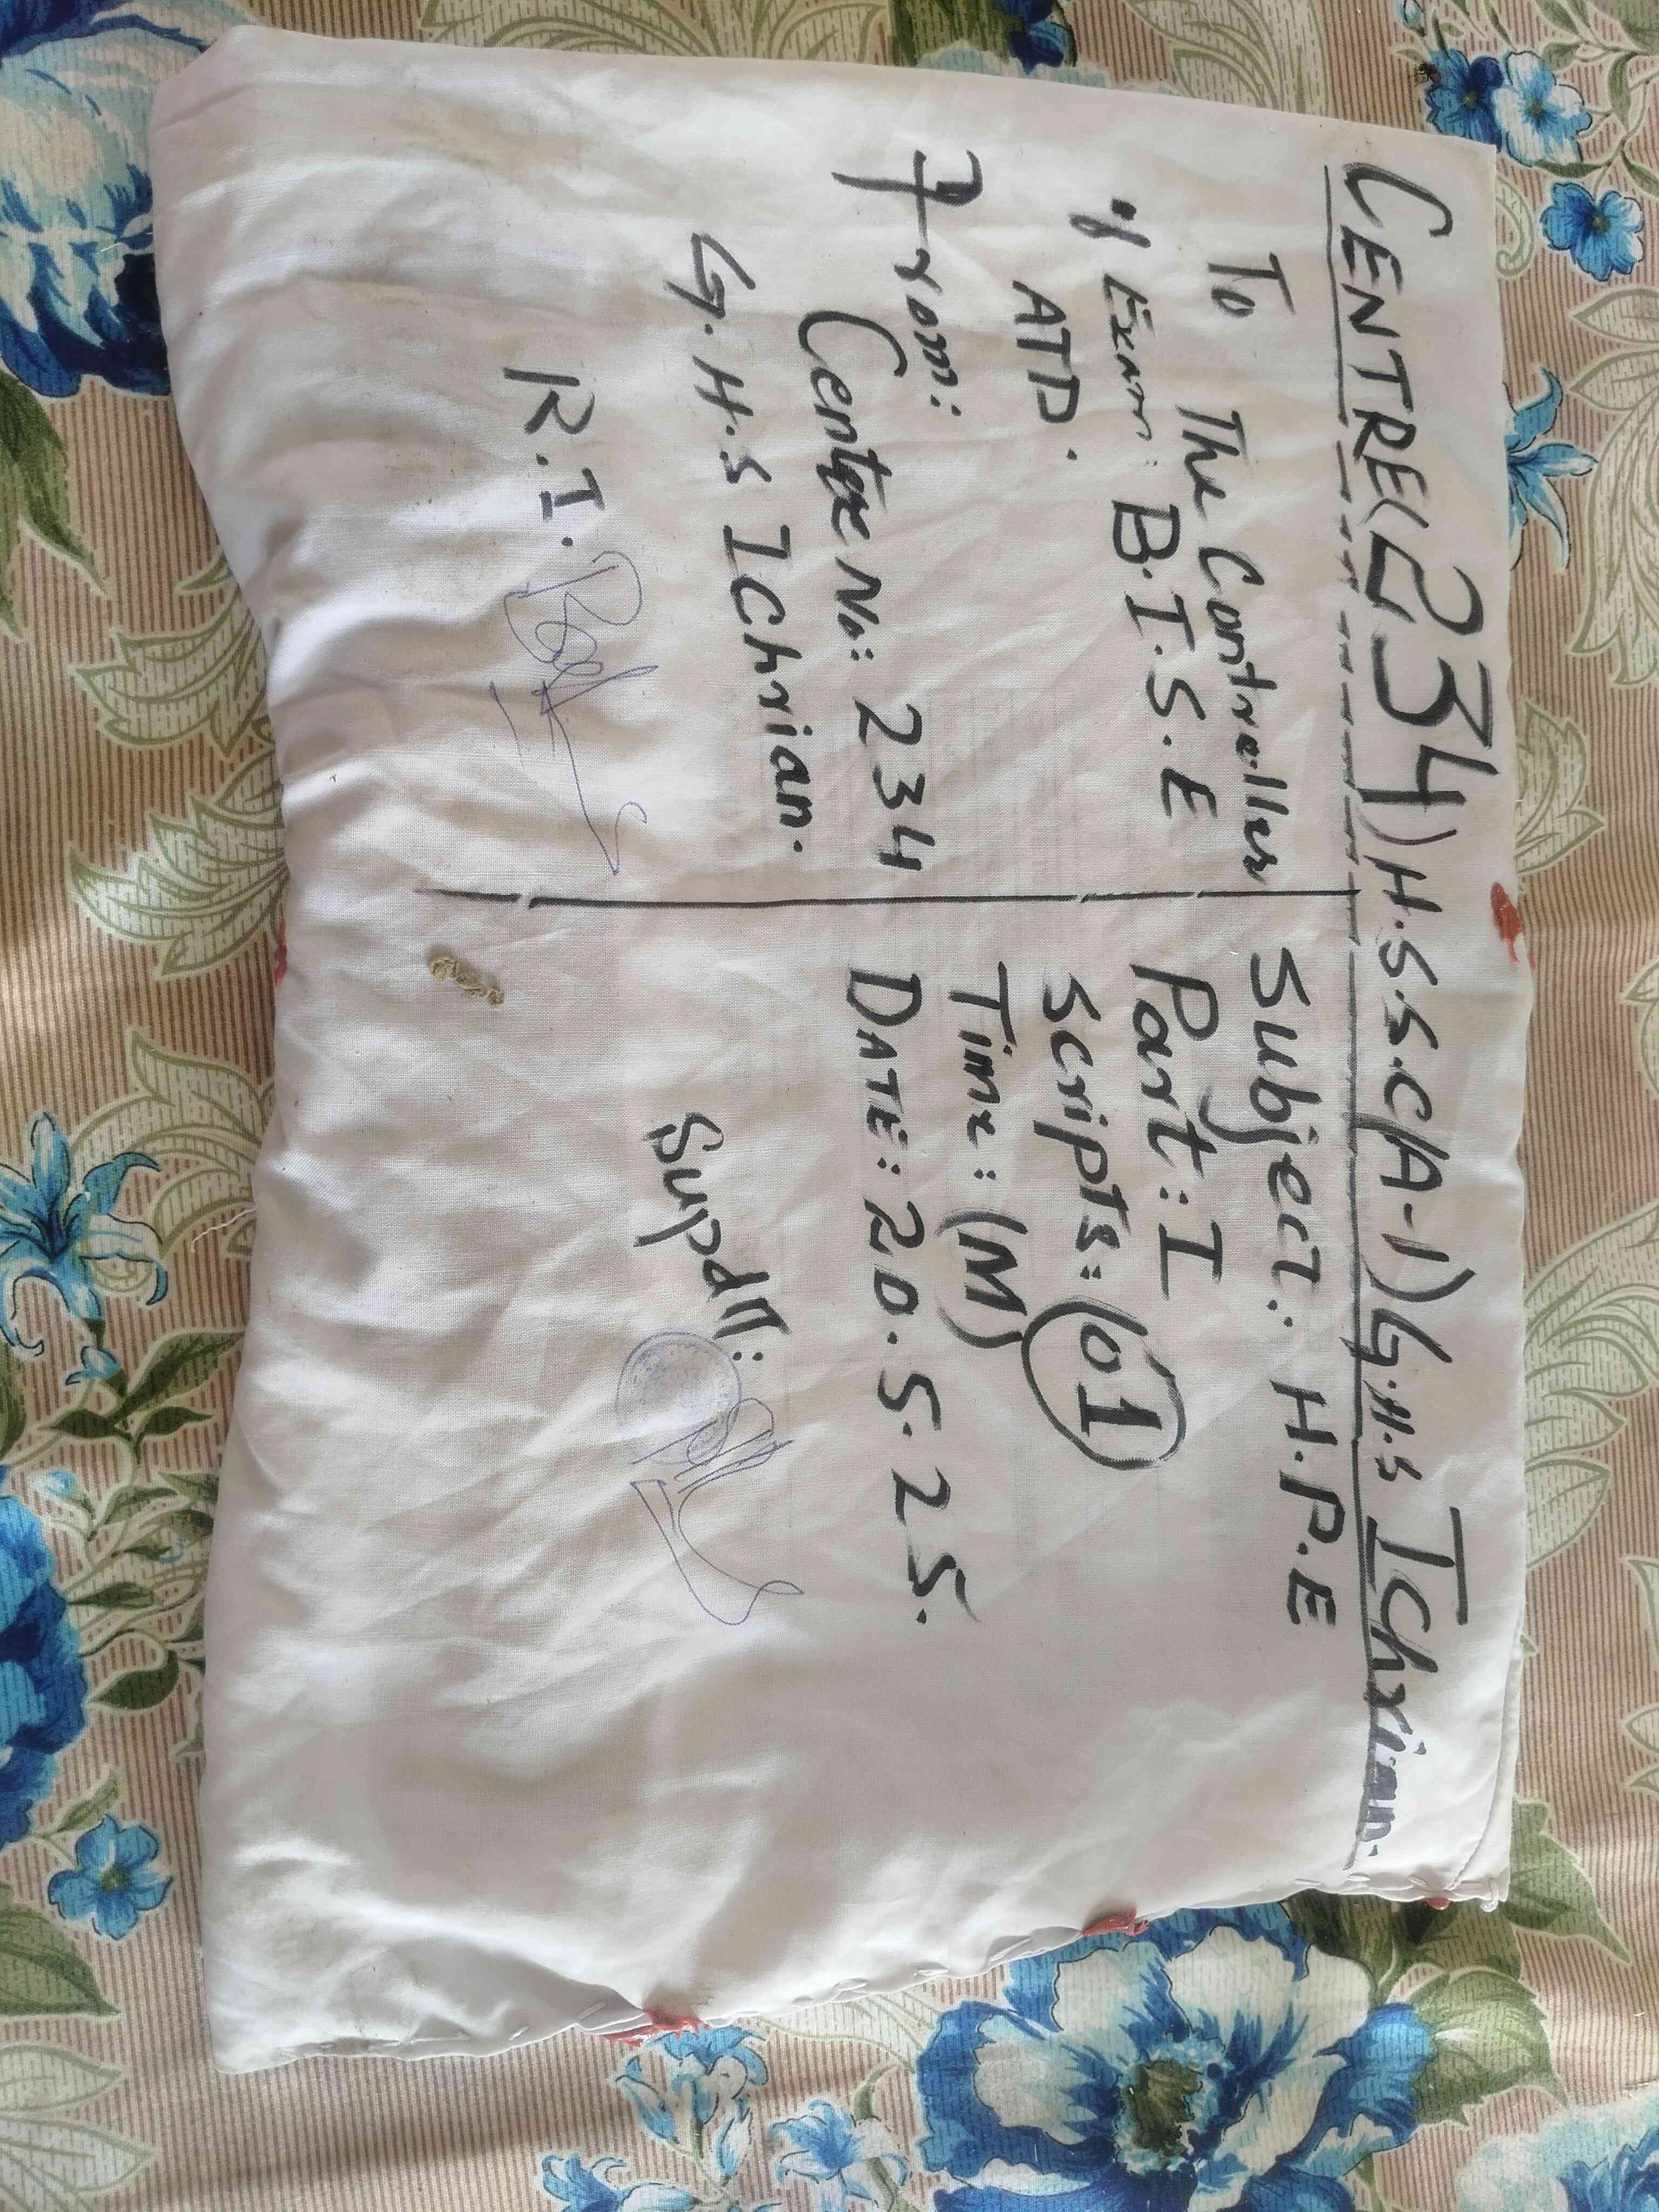 CENTRE(234) H.S.S.C(A-1) G.H.S Ichrian.
To
The Controller
of Exam: B.I.S.E
ATD.
From:
Centre No: 234
G.H.S Ichrian.
R.I.
Subject: H.P.E
Part: I
Scripts: (01)
Time: (M)
DATE: 20.5.25.
Supdtt: